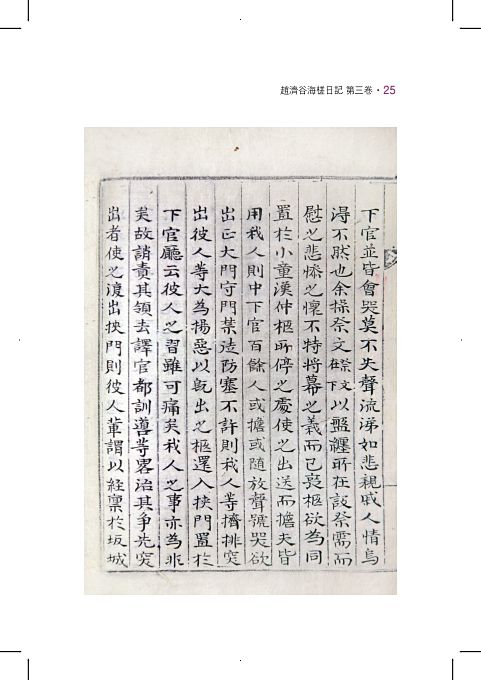 趙濟谷海槎日記 第三卷 · 25
下官並皆會哭莫不失聲流涕如悲親戚人情烏
淂不然也余操祭文祭文在下以盤纏所在設祭需而
慰之悲悕之懷不特將幕之義而已喪柩欲為同
置於小童漢仲柩所停之處使之出送而擔夫皆
用我人則中下官百餘人或擔或随放聲號哭欲
出正大門守門禁徒防塞不許則我人等擠排突
出彼人等大為揚惡以旣出之柩還入挾門置於
下官廳云彼人之習雖可痛矣我人之事亦為非
矣故誚責其領去譯官都訓導等畧治其争先突
出者使之渡出挾門則彼人輩謂以経禀於坂城